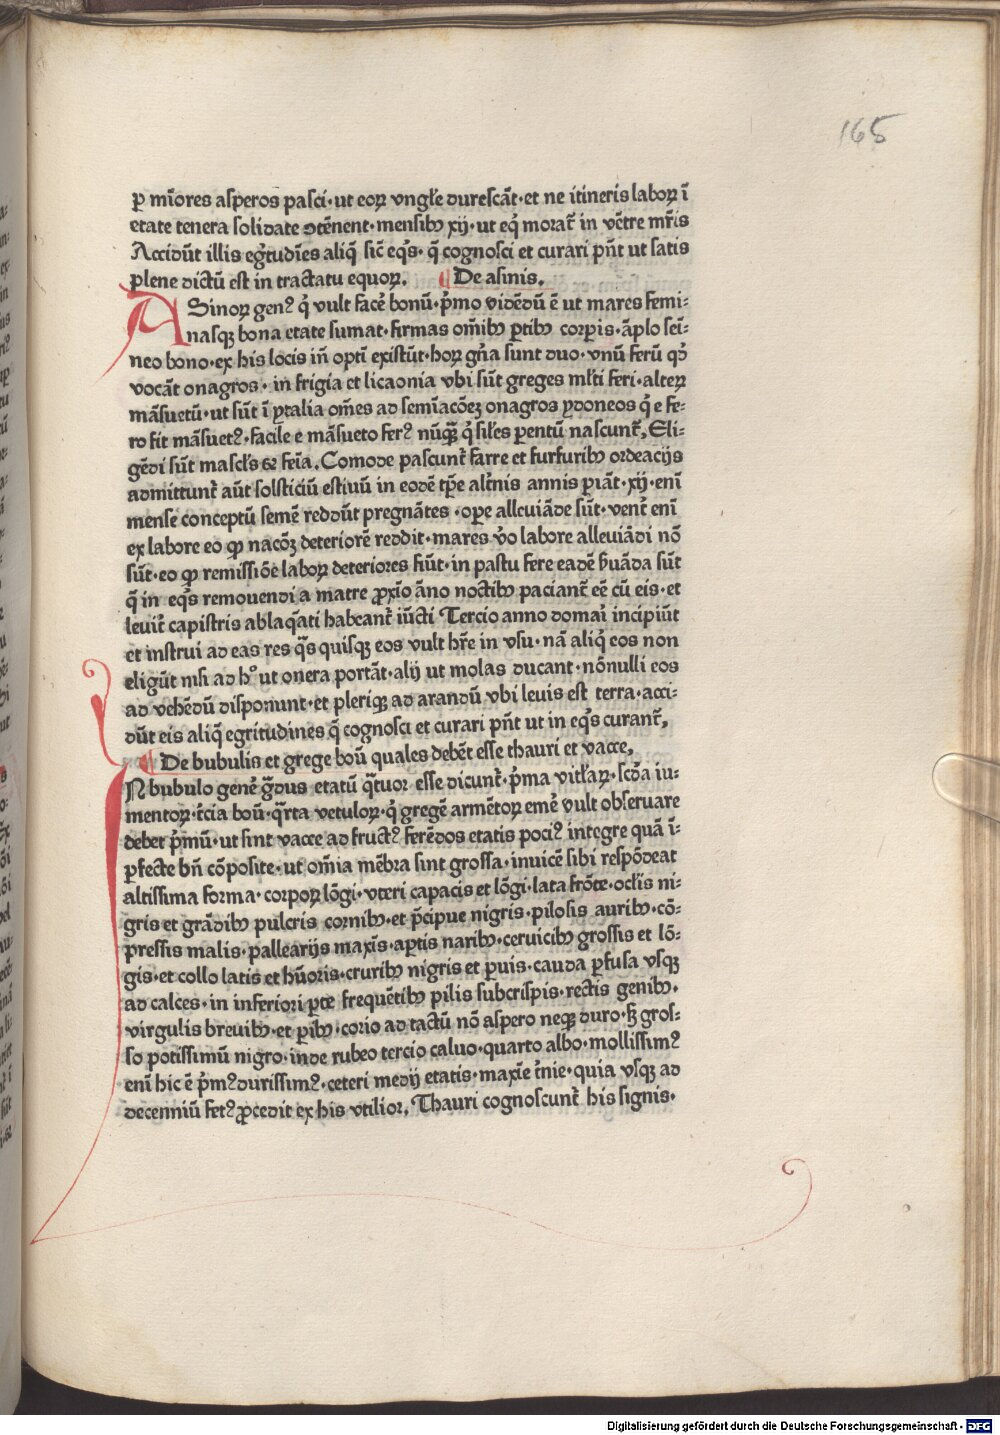 165
ꝑ mīores asperos pasci·ut eoꝝ vngl̄e durescāt·et ne itineris laboꝝ ī
etate tenera solidate ꝯtēnent·mensibꝫ xij·ut eq̄ morat̄ in vētre mr̄is
Accidūt illis egr̄tudīes aliq̄ sic̄ eqͥs·q̄ cognosci et curari pn̄t ut satis
plene dictū est in tractatu equoꝝ. ¶ De asinis.
ASinoꝝ genꝰ qͥ vult facē bonū·pͥmo vidēdū ē ut mares femi-
nasqꝫ bona etate sumat·firmas om̄ibꝫ ꝑtibꝫ corꝑis·āplo sēi-
neo bono·ex his locis in̄ optī existūt·hoꝝ gn̄a sunt duo·vnū ferū qd̓
vocāt onagros·in frigia et licaonia vbi sūt greges ml̄ti feri·alteꝝ
māsuetū·ut sūt ī ytalia om̄es ad semīacōeꝫ onagros ydoneos qͥ e fe-
ro fit māsuetꝰ·facile e māsueto ferꝰ nūqᷓꝫ qͥ sil̄es ꝑentū nascunt̄, Eli-
gēdi sūt mascl̄s ⁊ feīa. Comode pascunt̄ farre et furfuribꝫ ordeacijs
admittunt̄ aūt solsticiū estiuū in eodē tꝑe alt̄nis annis ꝑiāt·xij·enī
mense conceptū semē reddūt pregnātes·oꝑe alleuiāde sūt·vent̄ enī
ex labore eo ꝙ nacōꝫ deteriorē reddit·mares v̓o labore alleuiādi nō
sūt·eo ꝙ remissiōe laboꝝ deteriores fiūt·in pastu fere eadē ẜuāda sūt
q̄ in eqͥs remouendi a matre ꝓxīo āno noctibꝫ paciant̄ eē cū eis·et
leuit̄ capistris ablaqᷓti habeant̄ iūcti Tercio anno domāi incipiūt
et instrui ad eas res qᷓs quisqꝫ eos vult hr̄e in vsu·nā aliqͥ eos non
eligūt nisi ad hͦ ut onera portāt·alij ut molas ducant·nōnulli eos
ad vehēdū disponunt·et pleriqꝫ ad arandū vbi leuis est terra·acci-
dūt eis aliq̄ egritudines q̄ cognosci et curari pn̄t ut in eqͥs curant̄,
¶ De bubulis et grege boū quales debēt esse thauri et vacce,
IN bubulo genē gᷓdus etatū qᷓtuor esse dicunt̄·pͥma vitl̄aꝝ·scd̄a iu-
mentoꝝ·t̄cia boū·qᷓrta vetuloꝝ·qͥ gregē armētoꝝ emē vult obseruare
debet pͥmū·ut sint vacce ad fructꝰ ferēdos etatis pociꝰ integre quā ī-
ꝑfecte bn̄ cōposite·ut om̄ia mēbra sint grossa·inuicē sibi respōdeat
altissima forma·corpoꝝ lōgi·vteri capacis et lōgi·lata frōte·ocl̄is ni-
gris et grādibꝫ pulcris cornibꝫ·et p̄cipue nigris·pilosis auribꝫ·cō-
pressis malis·pallearijs maxīs·aptis naribꝫ·ceruicibꝫ grossis et lō-
gis·et collo latis et hūoris·cruribꝫ nigris et ꝑuis·cauda ꝑfusa vsqꝫ
ad calces·in inferiori ꝑte frequētibꝫ pilis subcrispis·rectis genibꝫ·
virgulis breuibꝫ·et ꝑibꝫ·corio ad tactū nō aspero neqꝫ duro·ꝫ gros-
so potissimū nigro·inde rubeo tercio caluo·quarto albo·mollissimꝰ
enī hic ē pͥmꝰ durissimꝰ·ceteri medij etatis·maxīe t̄nie·quia vsqꝫ ad
decenniū fetꝰ ꝓcedit ex his vtilior. Thauri cognoscunt̄ his signis·
Digitalisierung gefördert durch die Deutsche Forschungsgemeinschaft - DFG